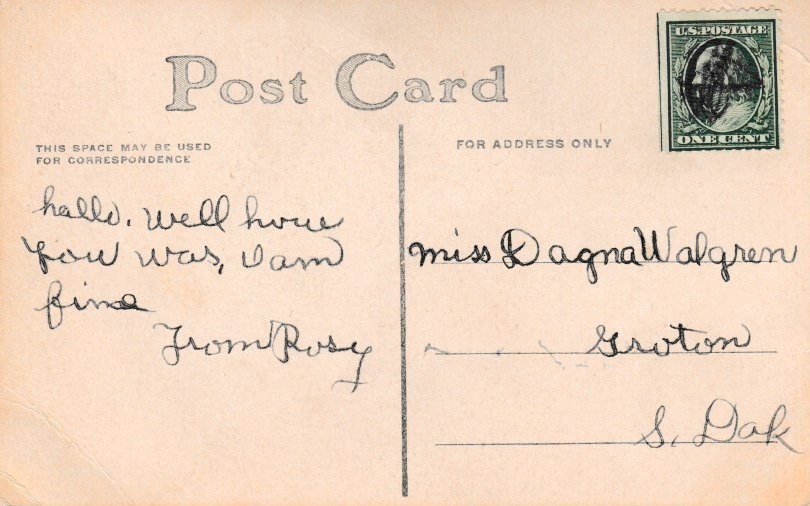 Post Card
THIS SPACE MAY BE USED
FOR CORRESPONDENCE
FOR ADDRESS ONLY
U.S. POSTAGE
ONE CENT
hallo. Well houe
you was, I am
fine
From Rosy
miss Dagna Walgren
Groton
S. Dak